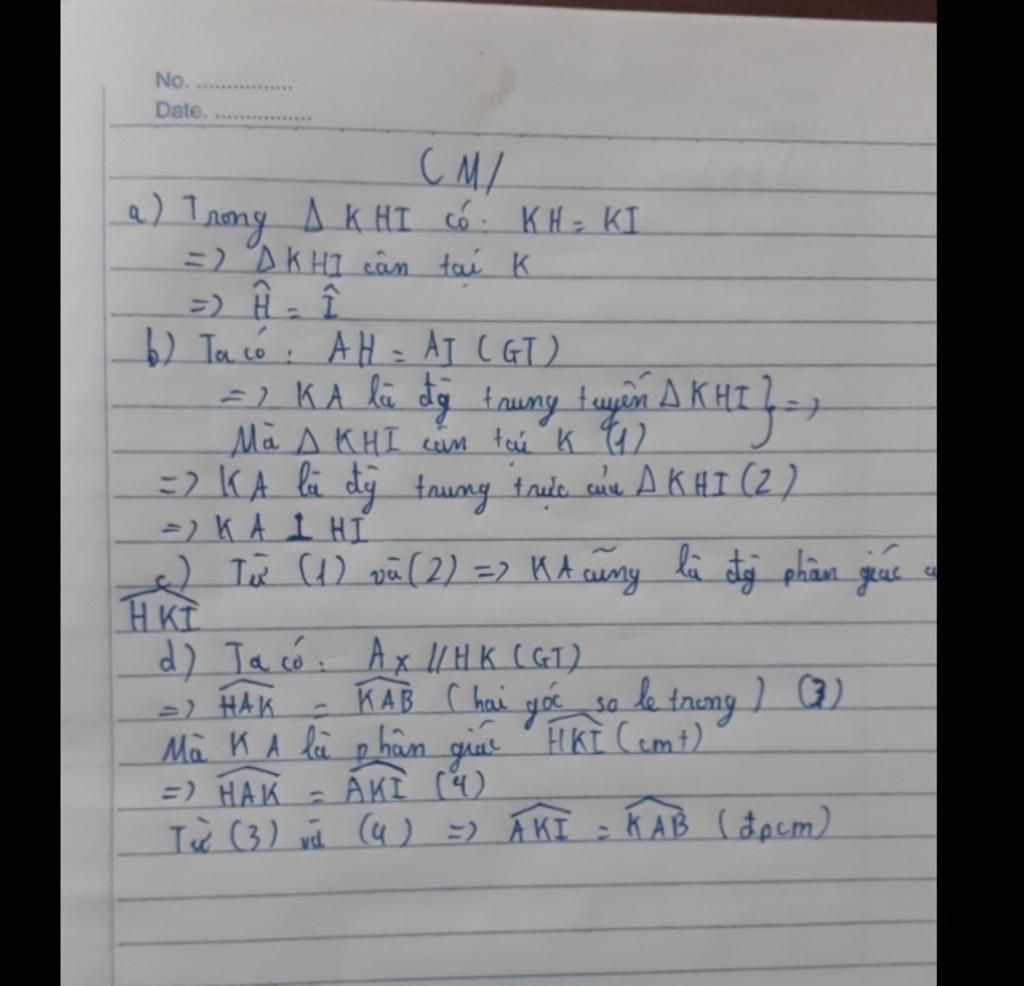 No. ................
Date. ................
CM/
a) Trong Δ KHI có: KH = KI
=> Δ KHI cân tại K
=> Ĥ = Î
b) Ta có: AH = AI (GT)
=> KA là đg̀ trung tuyến Δ KHI } =>
Mà Δ KHI cân tại K (1)
=> KA là đg̀ trung trực của Δ KHI (2)
=> KA ⊥ HI
c) Từ (1) và (2) => KA cũng là đg̀ phân giác
\widehat{HKI}
d) Ta có: Ax // HK (GT)
=> \widehat{HAK} = \widehat{KAB} (hai góc so le trong) (3)
Mà KA là phân giác \widehat{HKI} (cmt)
=> \widehat{HAK} = \widehat{AKI} (4)
Từ (3) và (4) => \widehat{AKI} = \widehat{KAB} (đpcm)